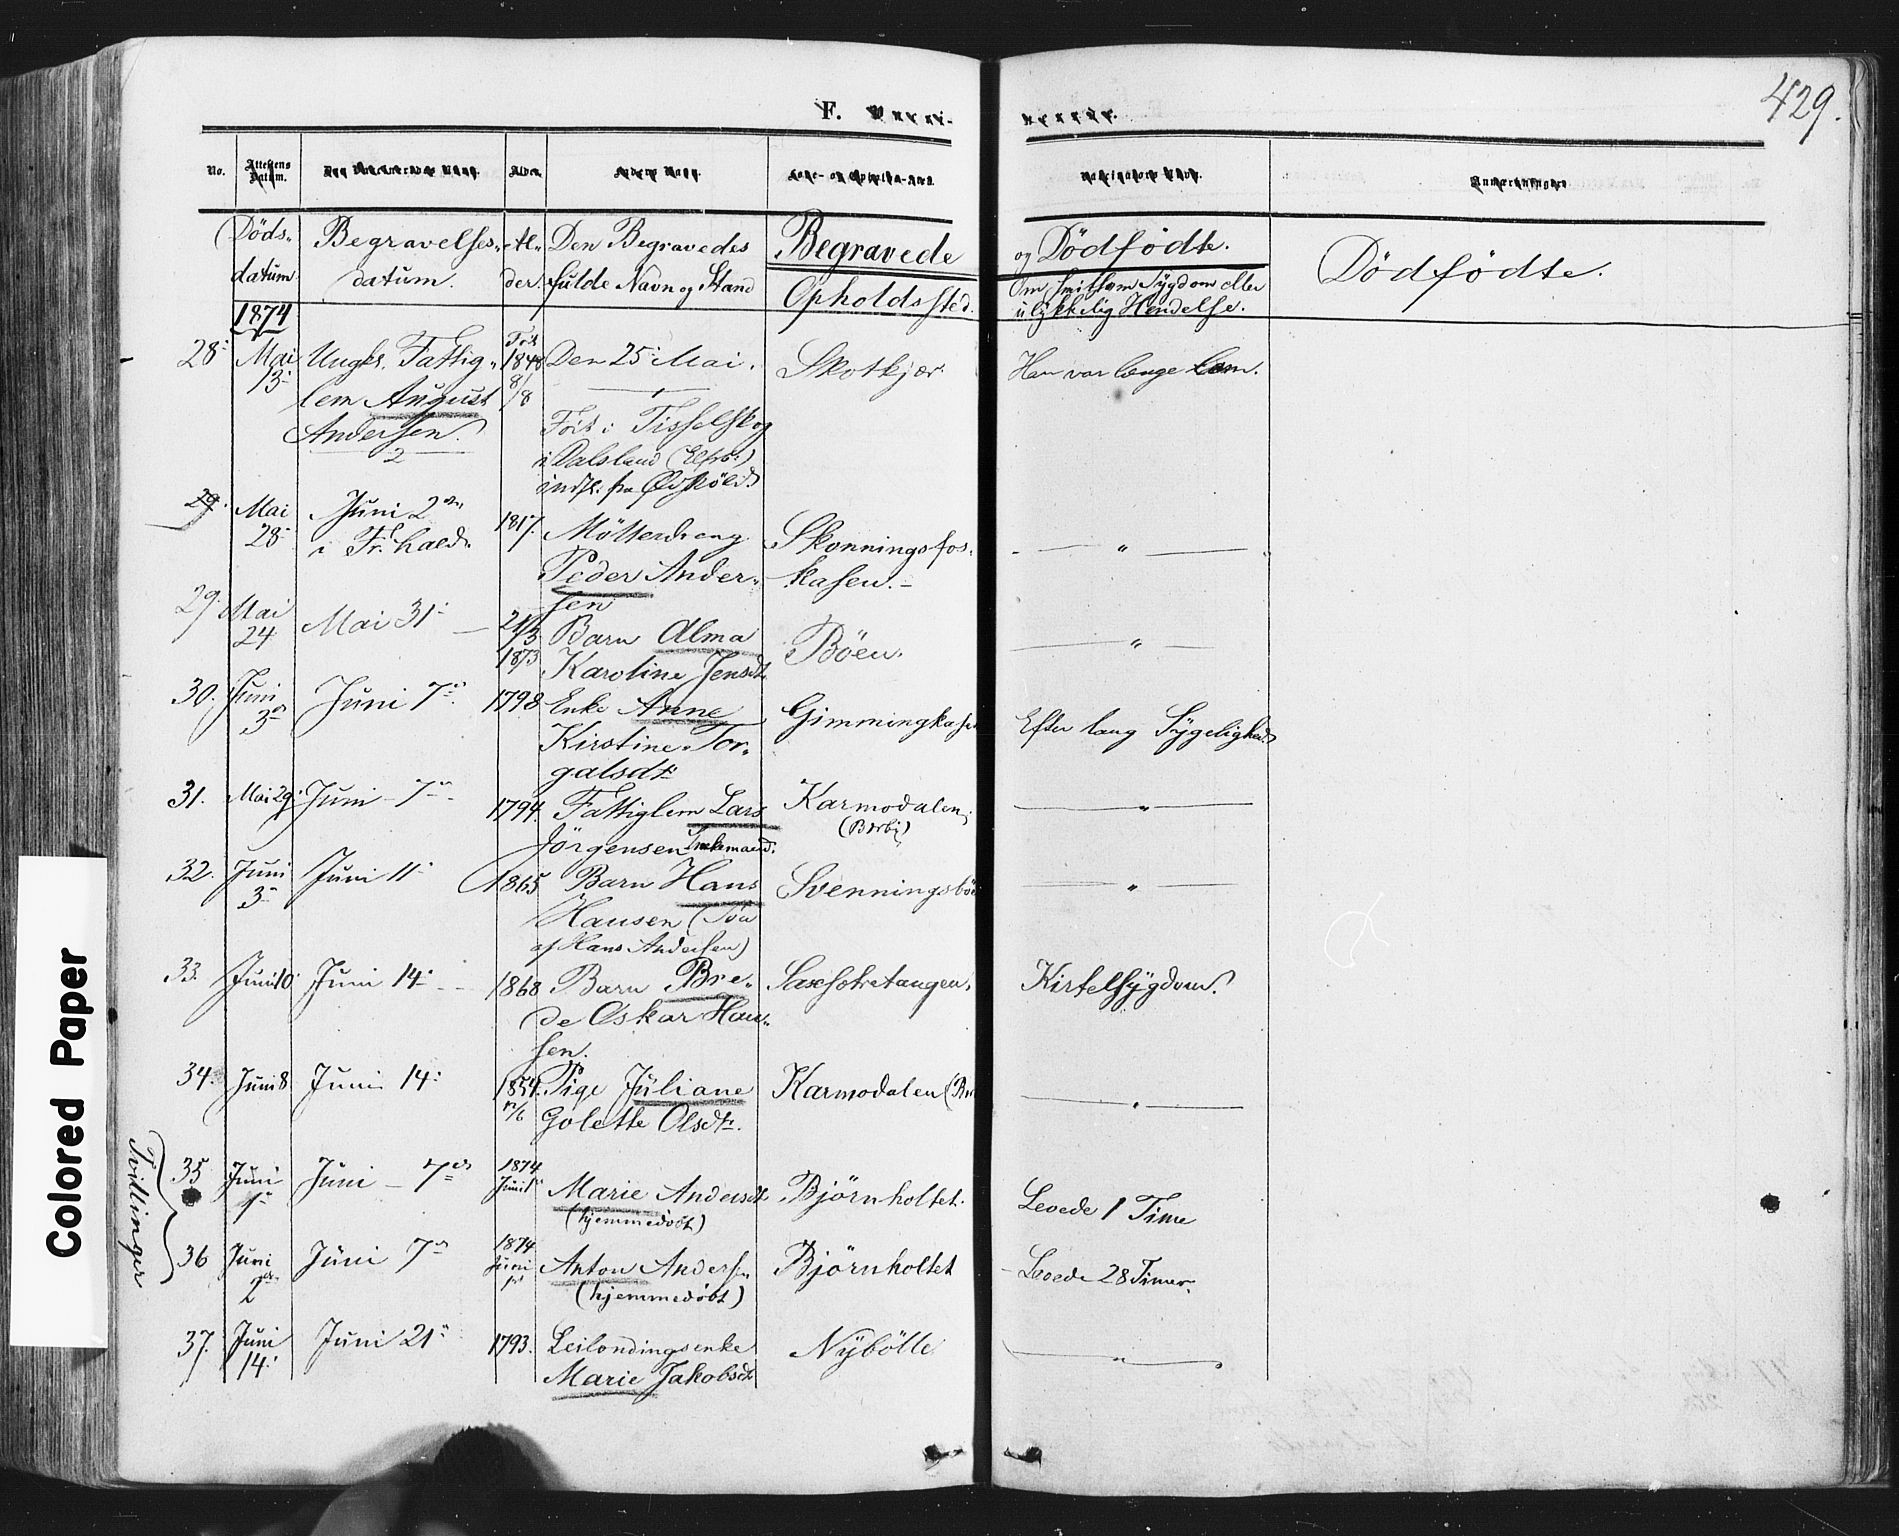 429.
F.
No.
Attestens Datum.
Alder.
Anmærkninger
Døds-
datum
Begravelses-
datum.
Al-
der.
Den Begravedes
fulde Navn og Stand
Begravede
Opholdssted.
og Dødfödte.
Om smitsom Sygdom eller
ulykkelig Hendelse.
Dödfödte.
1874
28. Mai 13. Ungk. Fattig-
lem August
Andersen.
Født 1848 8/8
Den 25. Mai.
Skotkjær
Han var længe lam.
Föd i Tisselskog
i Dalsland
indfl. fra
29. Mai 28. Juni 2den
i Fr.hald. 1817. Möllerdreng
Peder Ander-
sen
Skonningsfos-
kasen.
29. Mai 24 Mai 31. 21/3 1873 Barn Alma
Karoline Jensdt.
Böen.
30. Juni 3. Juni 7. 1798 Enke Anne
Kirstine Tor-
galsdt.
Gimmingkasen
Efter lang Sygelighed
31. Mai 29. Juni 7. 1794. Fattiglem Lars
Jörgensen
Karmodalen
(Berby)
32. Juni 3. Juni 11. 1865 Barn Hans
Hansen (Sön
af Hans Andersen)
Svenningsbö
33. Juni 10. Juni 14. 1868 Barn Bre-
de Oskar Han-
sen.
Kirtelsygdom.
34. Juni 8 Juni 14. 1854. Pige Juliane
Golette Olsdt.
Karmodalen
Tvillinger
35 Juni 1. Juni 7. 1874 Juni 1. Marie Andersdt.
(hjemmedøbt)
Bjørnholtet.
Levede 1 Time
36 Juni 2. Juni 7. 1874 Juni 1. Anton Andersen
(hjemmedøbt)
Bjørnholtet
Levede 28 Timer.
37. Juni 14. Juni 21. 1793. Leilændingsenke
Marie Jakobsdt.
Nybölle
Colored Paper